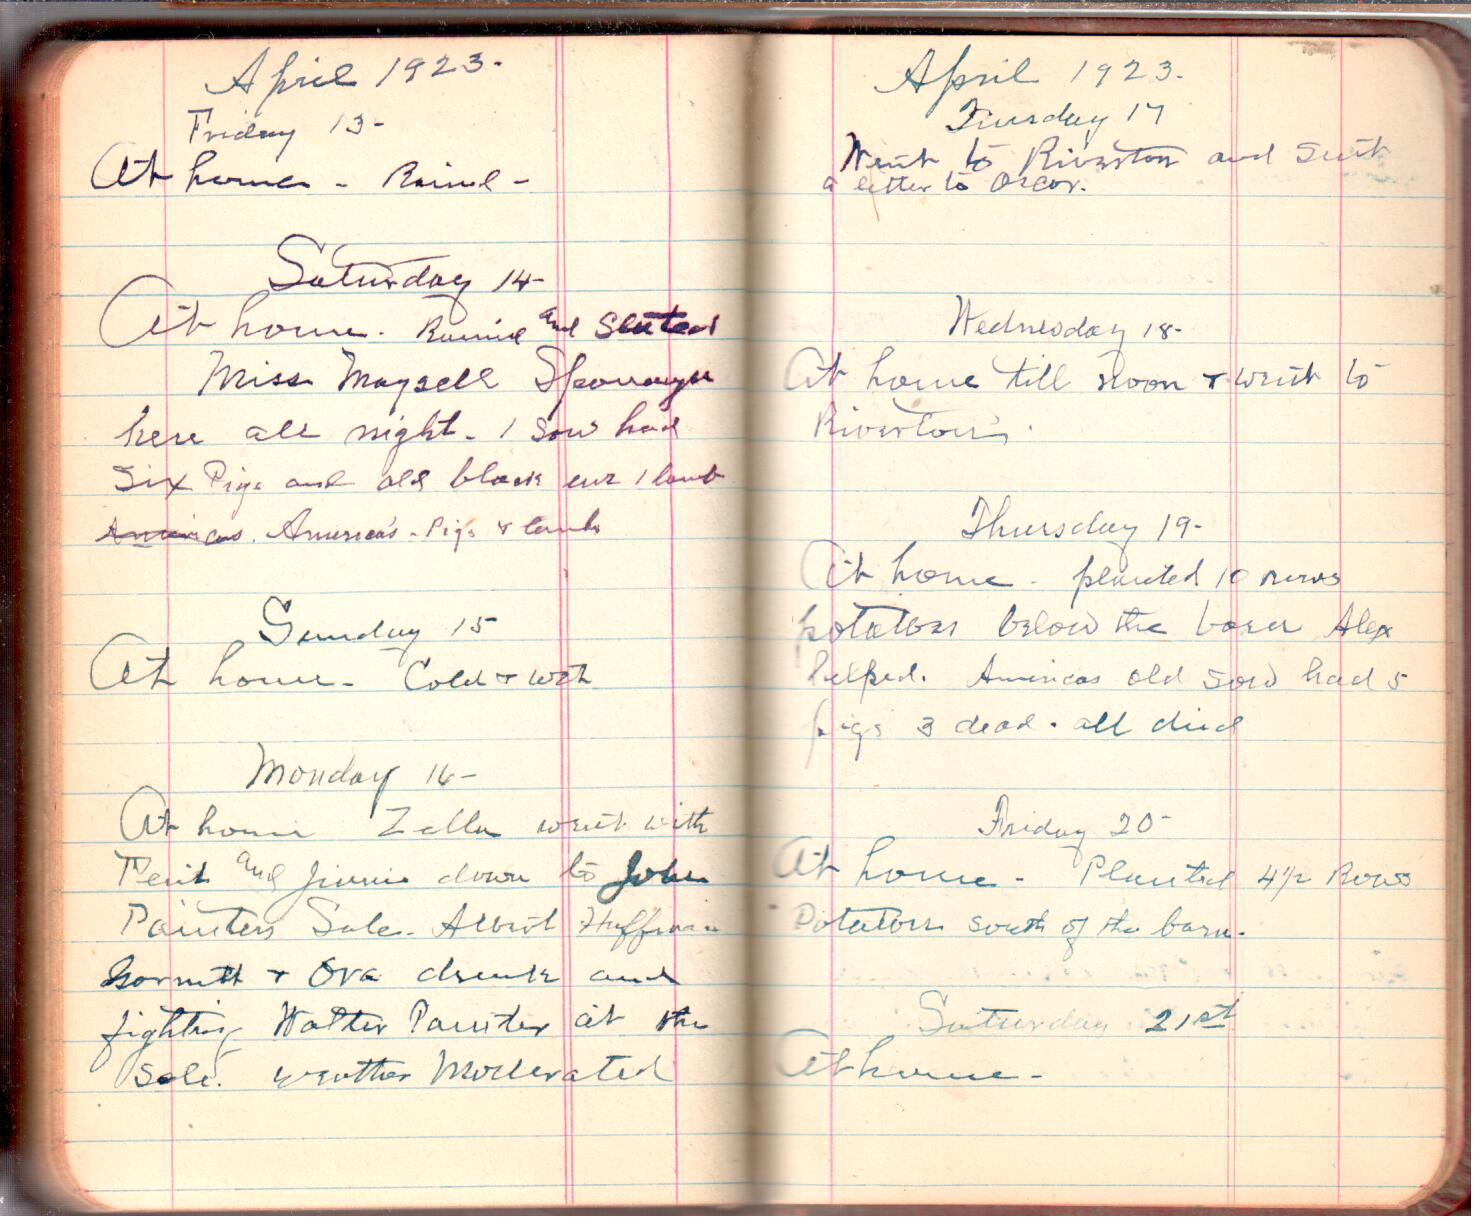 April 1923.
Friday 13-
At home - Raind -
Saturday 14-
At home. Raind and Sleated
Miss Maysell
here all night. 1 Sow had
Six Pigs and old black ewe 1 lamb
Americas. America's. Pigs & lamb
Sunday 15
At home - Cold & wet
Monday 16-
At home Zella went with
and Jinnie down to John
Painters Sale. Albert Huffman
& Ova drunk and
fighting Walter Painter at the
Sale. weather Moderated
April 1923.
Tuesday 17
Went to Riverton and Sent
a letter to Oscar.
Wednesday 18-
At home till noon & went to
Riverton.
Thursday 19-
At home - planted 10 rows
potatoes below the barn Alex
helped. Americas old sow had 5
pigs 3 dead. all died
Friday 20-
At home - Planted 4½ Rows
Potatoes south of the barn.
Saturday 21st
At home -